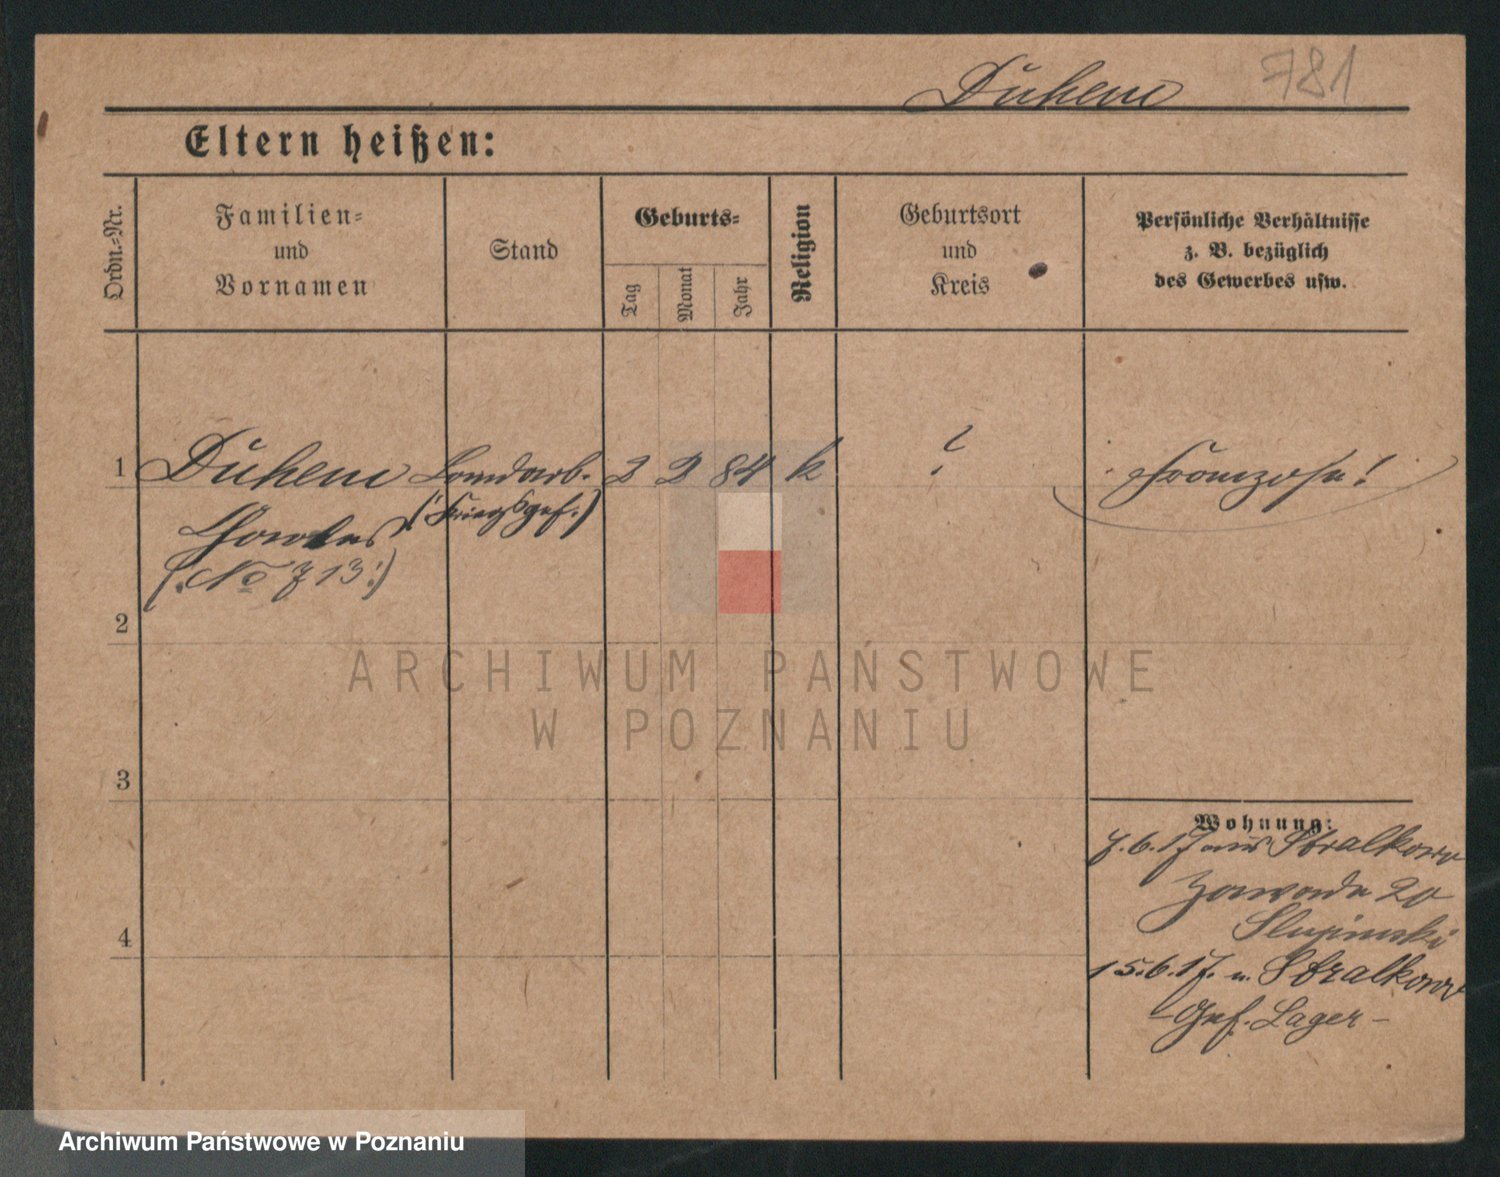 Duhem 781
Eltern heißen:
Ordn.=Nr.
Familien=
und
Vornamen
Stand
Geburts=
Tag
Monat
Jahr
Religion
Geburtsort
und
Kreis
Persönliche Verhältnisse
z. B. bezüglich
des Gewerbes usw.
1 Duhem Landarb. 2 2 84 k ? Franzose!
Charles (Kriegsgef.)
(: No 713 :)
2
ARCHIWUM PAŃSTWOWE
W POZNANIU
3
Wohnung:
7.6.17 aus Stralkow
Zawade 20
Slupinski
4
15.6.17. n. Stralkow
- Gef. Lager -
Archiwum Państwowe w Poznaniu